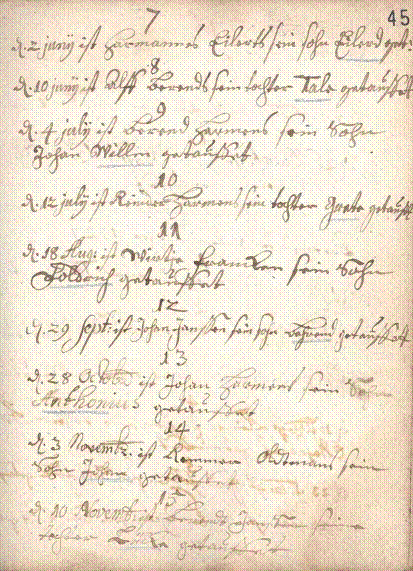 7 45
d. 2 junij ist Harmannes Eilerts sein sohn Eilerd get:
8
d. 10 junij ist Alff Berends sein tochter Tale getauffet
9
d. 4 julij ist berend Harmens sein Sohn
Johan Willem getauffet
10
d. 12 julij ist Reiner Harmens sein tochter Grete getauffet
11
d. 18 Aug: ist Wirtje Francken sein Sohn
Foldrich getauffet
12
d. 29 Sept: ist Johan Janssen sein sohn Behrend getauffet
13
d. 28 Octob: ist Johan Harmens sein Sohn
Anthonius getauffet
14
d. 3 Novemb: ist Remmer Oltmans sein
Sohn Johan getauffet
15
d. 10 Novemb: ist berend Janssen seine
tochter getauffet